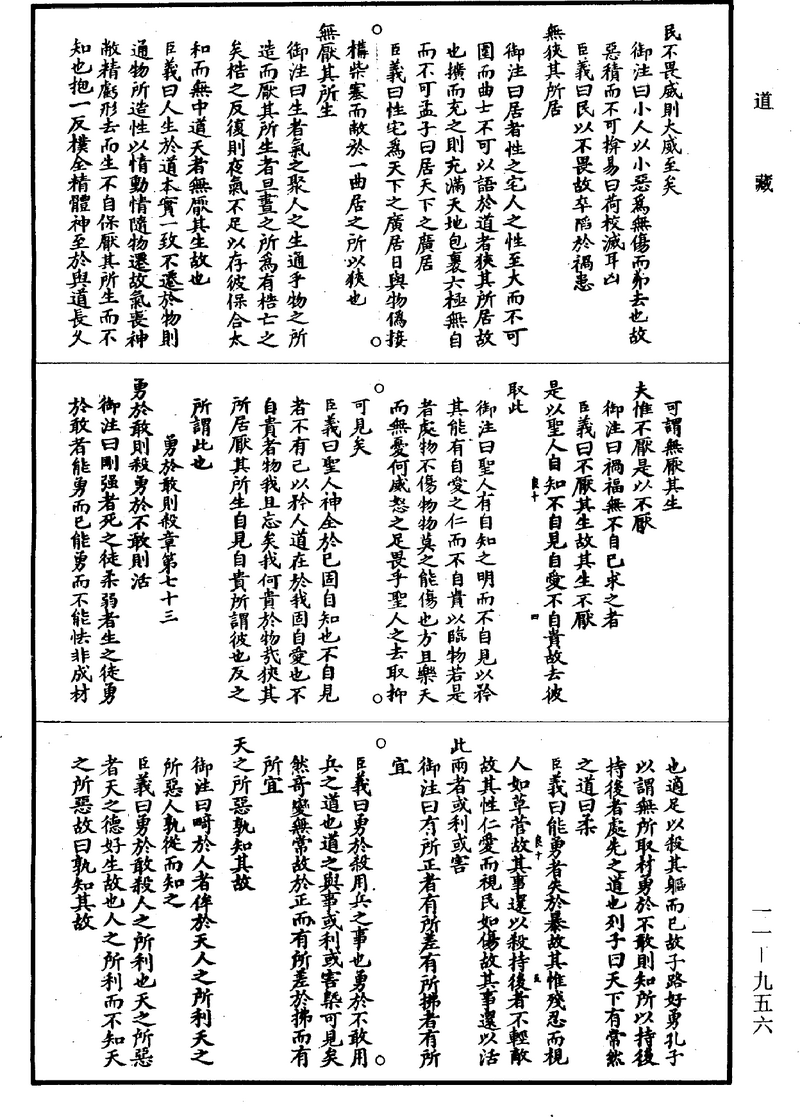 道藏
民不畏威則大威至矣
御注曰小人以小惡為無傷而弗去也故
惡積而不可揜易曰荷校滅耳凶
臣義曰民以不畏故卒陷於禍患
無狹其所居
御注曰居者性之宅人之性至大而不可
圍而曲士不可以語於道者狹其所居故
也擴而充之則充滿天地包裹六極無自
而不可孟子曰居天下之廣居
臣義曰性宅為天下之廣居日與物偽接
構柴塞而敵於一曲居之所以狹也
無厭其所生
御注曰生者氣之聚人之生通乎物之所
造而厭其所生者旦晝之所為有梏亡之
矣梏之反復則夜氣不足以存彼保合太
和而無中道夭者無厭其生故也
臣義曰人生於道本實一致不遷於物則
通物所造性以情動情隨物遷故氣喪神
敝精虧形去而生不自保厭其所生而不
知也抱一反樸全精體神至於與道長久
可謂無厭其生
夫惟不厭是以不厭
御注曰禍福無不自己求之者
臣義曰不厭其生故其生不厭
是以聖人自知不自見自愛不自貴故去彼
取此
良十 四
御注曰聖人有自知之明而不自見以矜
其能有自愛之仁而不自貴以臨物若是
者處物不傷物物莫之能傷也方且樂天
而無憂何威怒之足畏乎聖人之去取抑
可見矣
臣義曰聖人神全於已固自知也不自見
者不有己以矜人道在於我固自愛也不
自貴者物我且忘矣我何貴於物哉狹其
所居厭其所生自見自貴所謂彼也反之
所謂此也
勇於敢則殺章第七十三
勇於敢則殺勇於不敢則活
御注曰剛強者死之徒柔弱者生之徒勇
於敢者能勇而已能勇而不能怯非成材
也適足以殺其軀而已故子路好勇孔子
以謂無所取材勇於不敢則知所以持後
持後者處先之道也列子曰天下有常然
之道曰柔
良十 五
臣義曰能勇者失於暴故其惟殘忍而視
人如草菅故其事還以殺持後者不輕敵
故其性仁愛而視民如傷故其事還以活
此兩者或利或害
御注曰有所正者有所差有所拂者有所
宜
臣義曰勇於殺用兵之事也勇於不敢用
兵之道也道之與事或利或害槩可見矣
然奇變無常故於正而有所差於拂而有
所宜
天之所惡孰知其故
御注曰畸於人者侔於天人之所利天之
所惡人孰從而知之
臣義曰勇於敢殺人之所利也天之所惡
者天之德好生故也人之所利而不知天
之所惡故曰孰知其故
一一－九五六